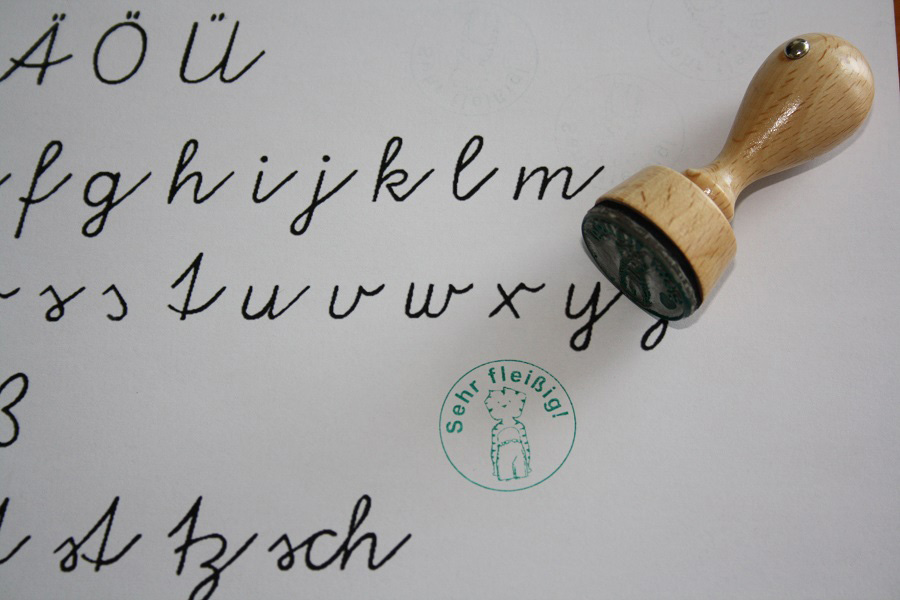 Ä Ö Ü
f g h i j k l m
s s t u v w x y
ß
Sehr fleißig!
st tz sch